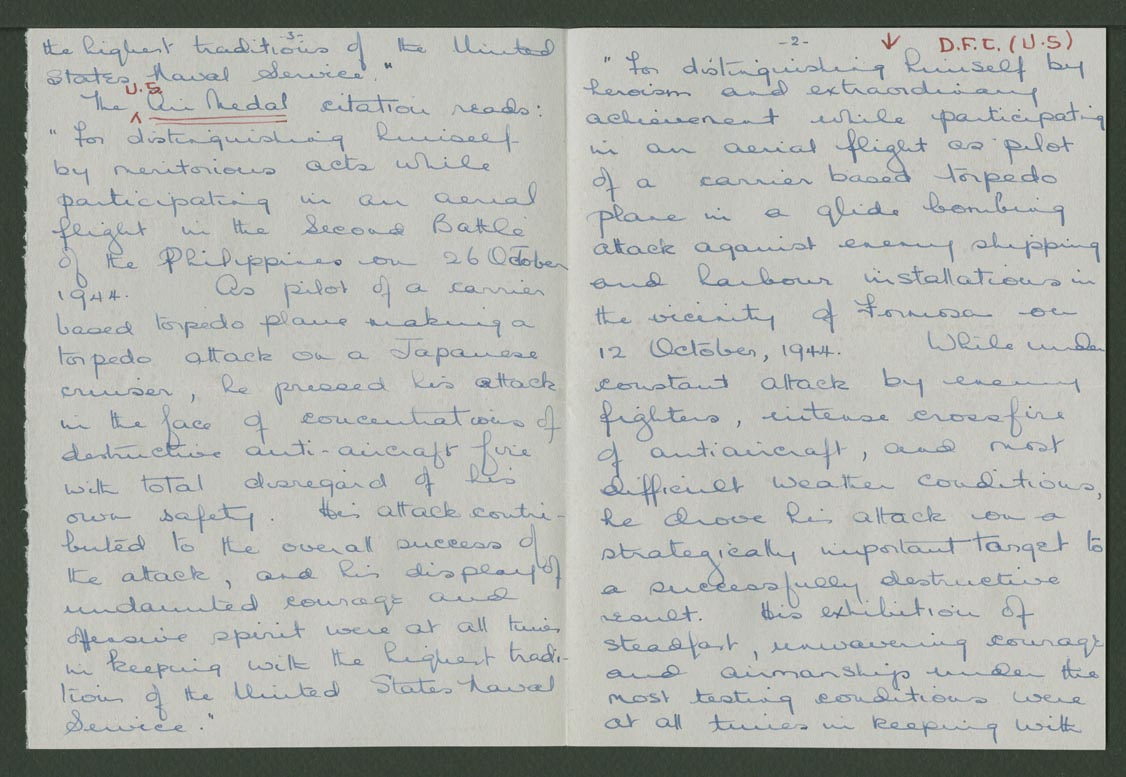 -2- ↓ D.F.C. (U.S)
"For distinguishing himself by
heroism and extraordinary
achievement while participating
in an aerial flight as pilot
of a carrier based torpedo
plane in a glide bombing
attack against enemy shipping
and harbour installations in
the vicinity of Formosa on
12 October, 1944. While under
constant attack by enemy
fighters, intense crossfire
of antiaircraft, and most
difficult weather conditions,
he drove his attack on a
strategically important target to
a successfully destructive
result. His exhibition of
steadfast, unwavering courage
and airmanship under the
most testing conditions were
at all times in keeping with
-3-
the highest traditions of the United
States Naval Service."
The U.S. Air Medal citation reads:
"For distinguishing himself
by meritorious acts while
participating in an aerial
flight in the Second Battle
of the Philippines on 26 October
1944. As pilot of a carrier
based torpedo plane making a
torpedo attack on a Japanese
cruiser, he pressed his attack
in the face of concentrations of
destructive anti-aircraft fire
with total disregard of his
own safety. His attack contri-
buted to the overall success of
the attack, and his display of
undaunted courage and
offensive spirit were at all times
in keeping with the highest tradi-
tions of the United States Naval
Service."